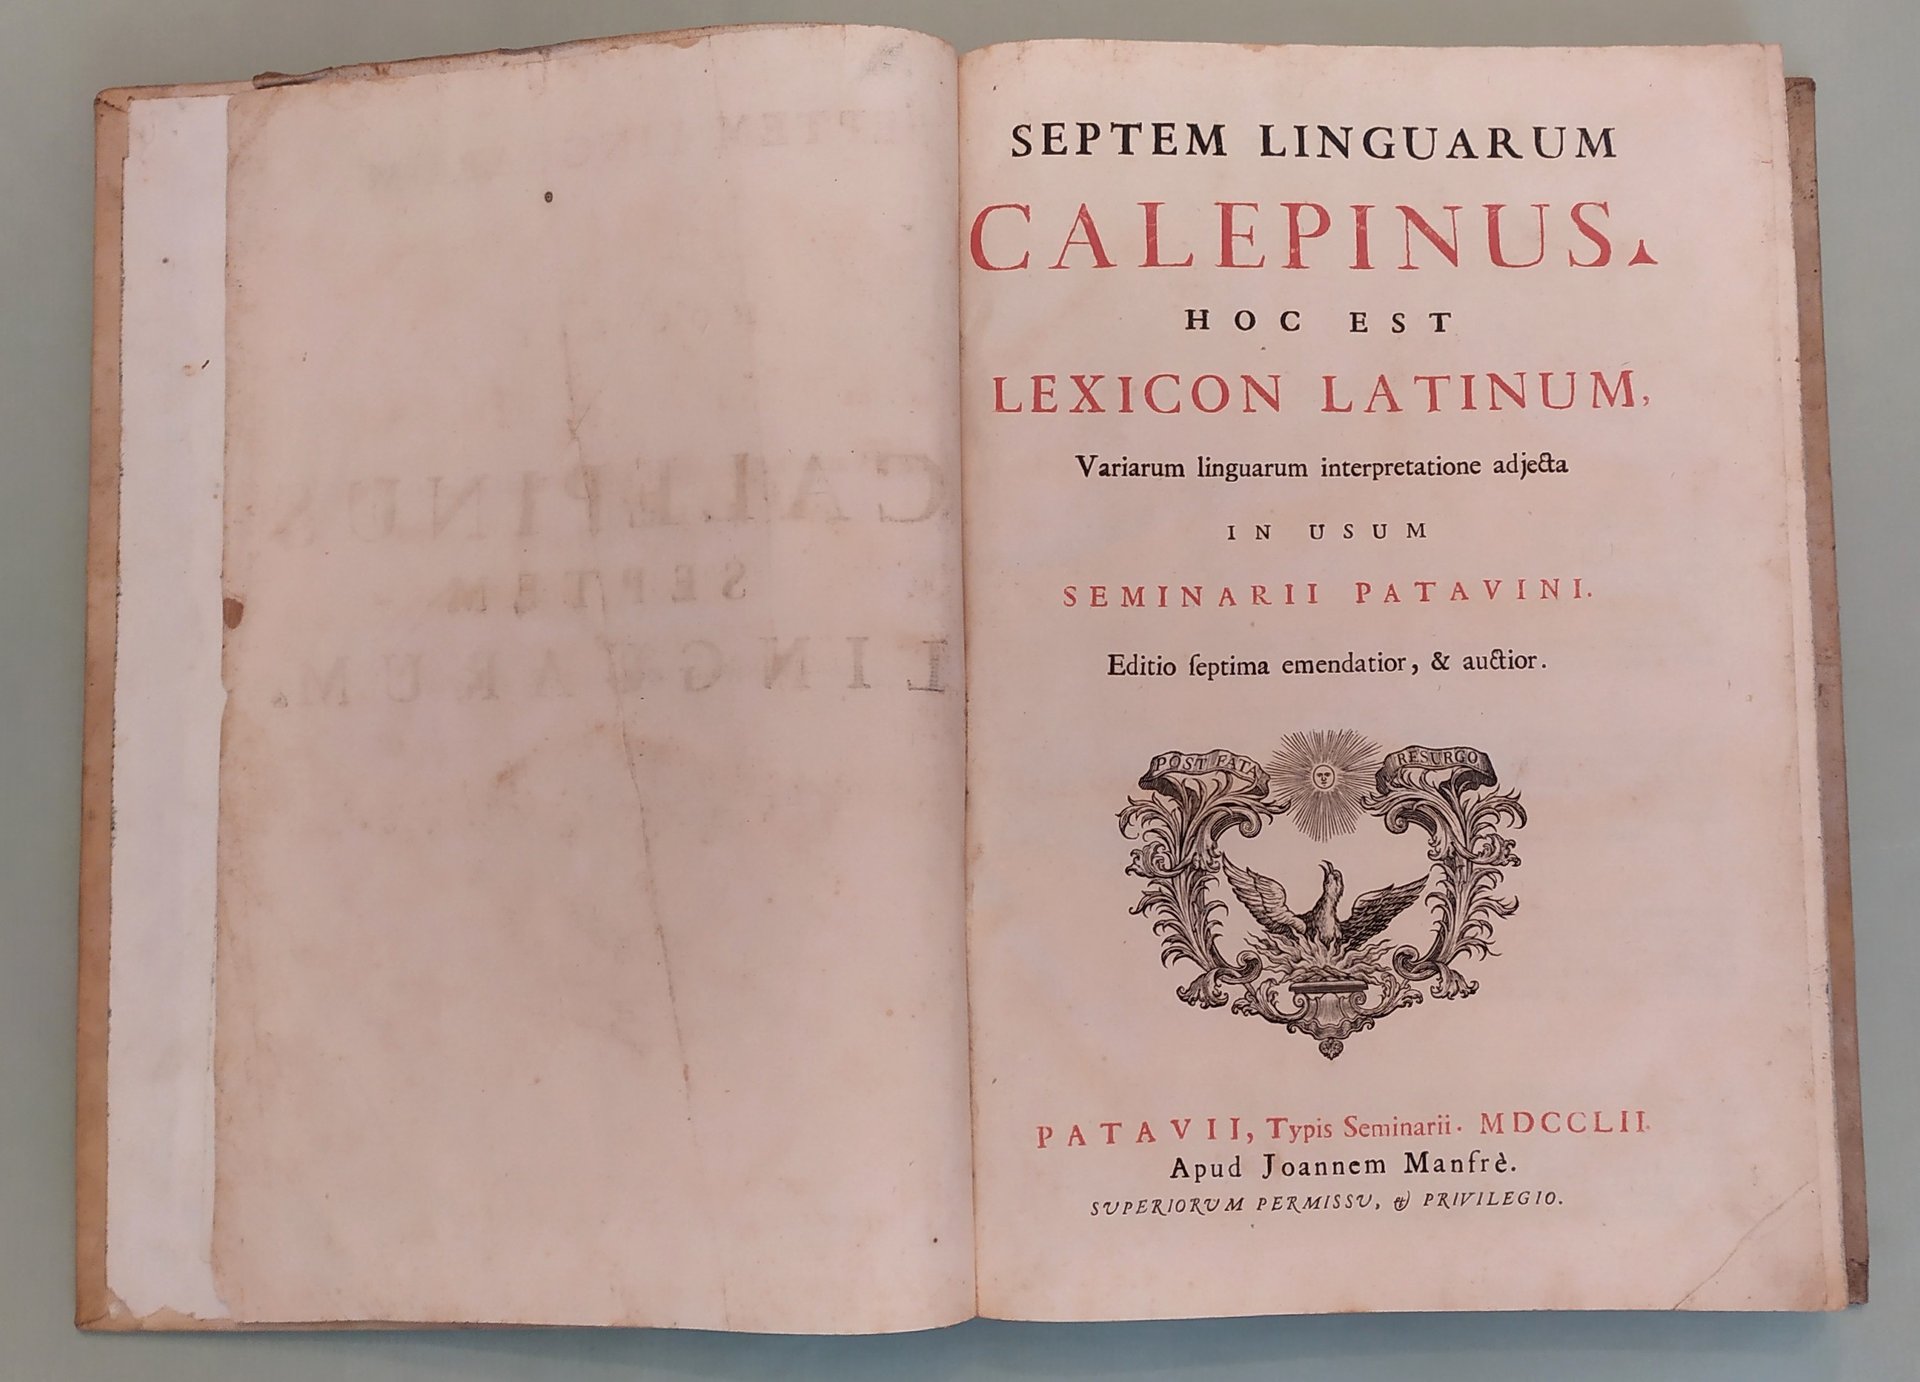 CALEPINUS
SEPTEM
LINGUARUM.
SEPTEM LINGUARUM
CALEPINUS,
HOC EST
LEXICON LATINUM,
Variarum linguarum interpretatione adjecta
IN USUM
SEMINARII PATAVINI.
Editio ſeptima emendatior, & auctior.
POST FATA RESURGO
PATAVII, Typis Seminarii. MDCCLII.
Apud Joannem Manfrè.
SUPERIORUM PERMISSU, & PRIVILEGIO.